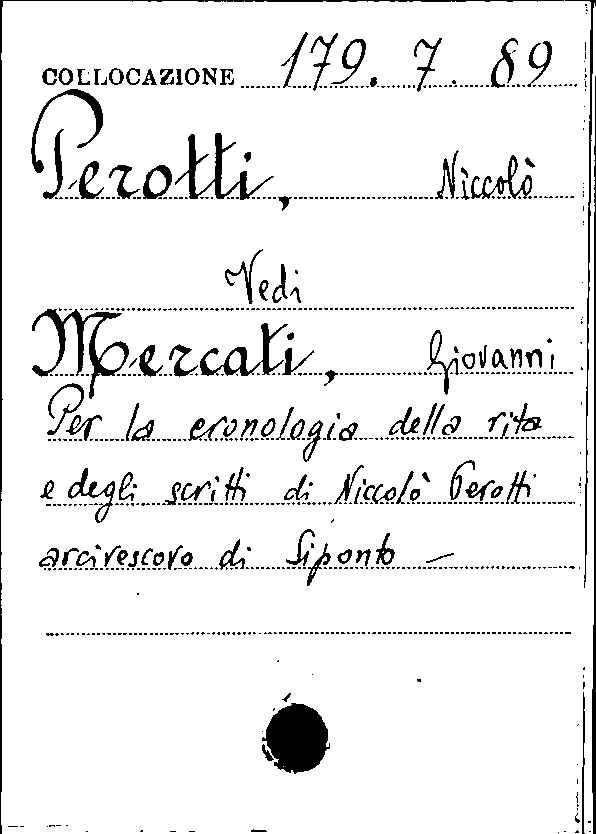 COLLOCAZIONE 179. 7. 89
Perotti, Niccolò
Vedi
Mercati, Giovanni
Per la cronologia della vita
e degli scritti di Niccolò Perotti
arcivescovo di Siponto —